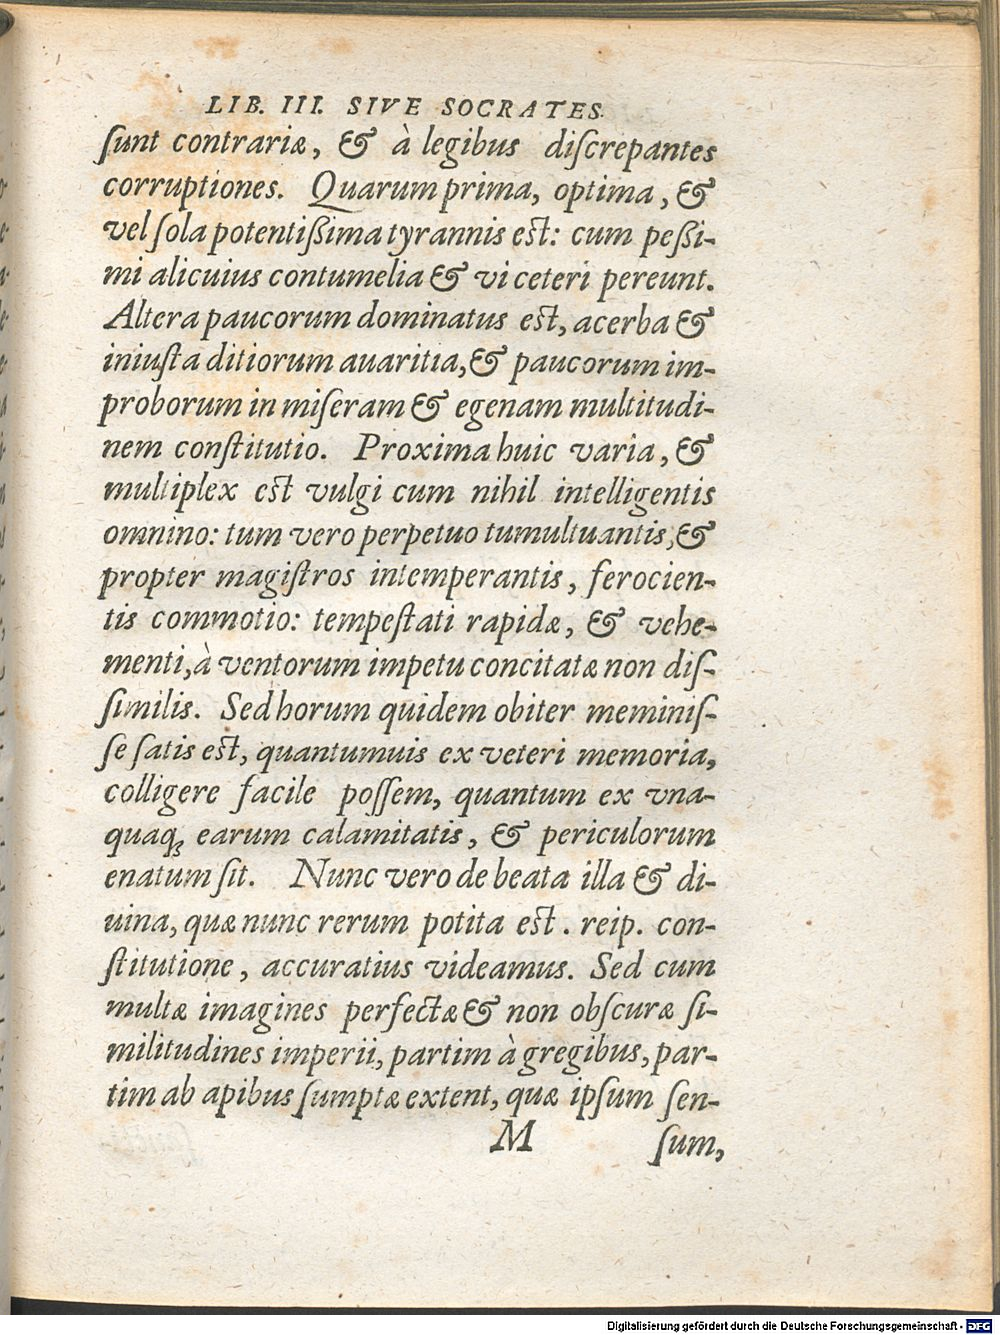 LIB. III. SIVE SOCRATES.
ſunt contrariæ, & à legibus diſcrepantes
corruptiones. Quarum prima, optima, &
vel ſola potentißima tyrannis est: cum peßi-
mi alicuius contumelia & vi ceteri pereunt.
Altera paucorum dominatus est, acerba &
iniuſta ditiorum auaritia, & paucorum im-
proborum in miſeram & egenam multitudi-
nem conſtitutio. Proxima huic varia, &
multiplex est vulgi cum nihil intelligentis
omnino: tum vero perpetuo tumultuantis, &
propter magiſtros intemperantis, ferocien-
tis commotio: tempeſtati rapidæ, & vehe-
menti, à ventorum impetu concitatæ non diſ-
ſimilis. Sed horum quidem obiter meminiſ-
ſe ſatis est, quantumuis ex veteri memoria,
colligere facile poſſem, quantum ex vna-
quaq; earum calamitatis, & periculorum
enatum ſit. Nunc vero de beata illa & di-
uina, quæ nunc rerum potita est. reip. con-
ſtitutione, accuratius videamus. Sed cum
multæ imagines perfectæ & non obſcuræ ſi-
militudines imperii, partim à gregibus, par-
tim ab apibus ſumptæ extent, quæ ipſum ſen-
M ſum,
Digitalisierung gefördert durch die Deutsche Forschungsgemeinschaft - DFG